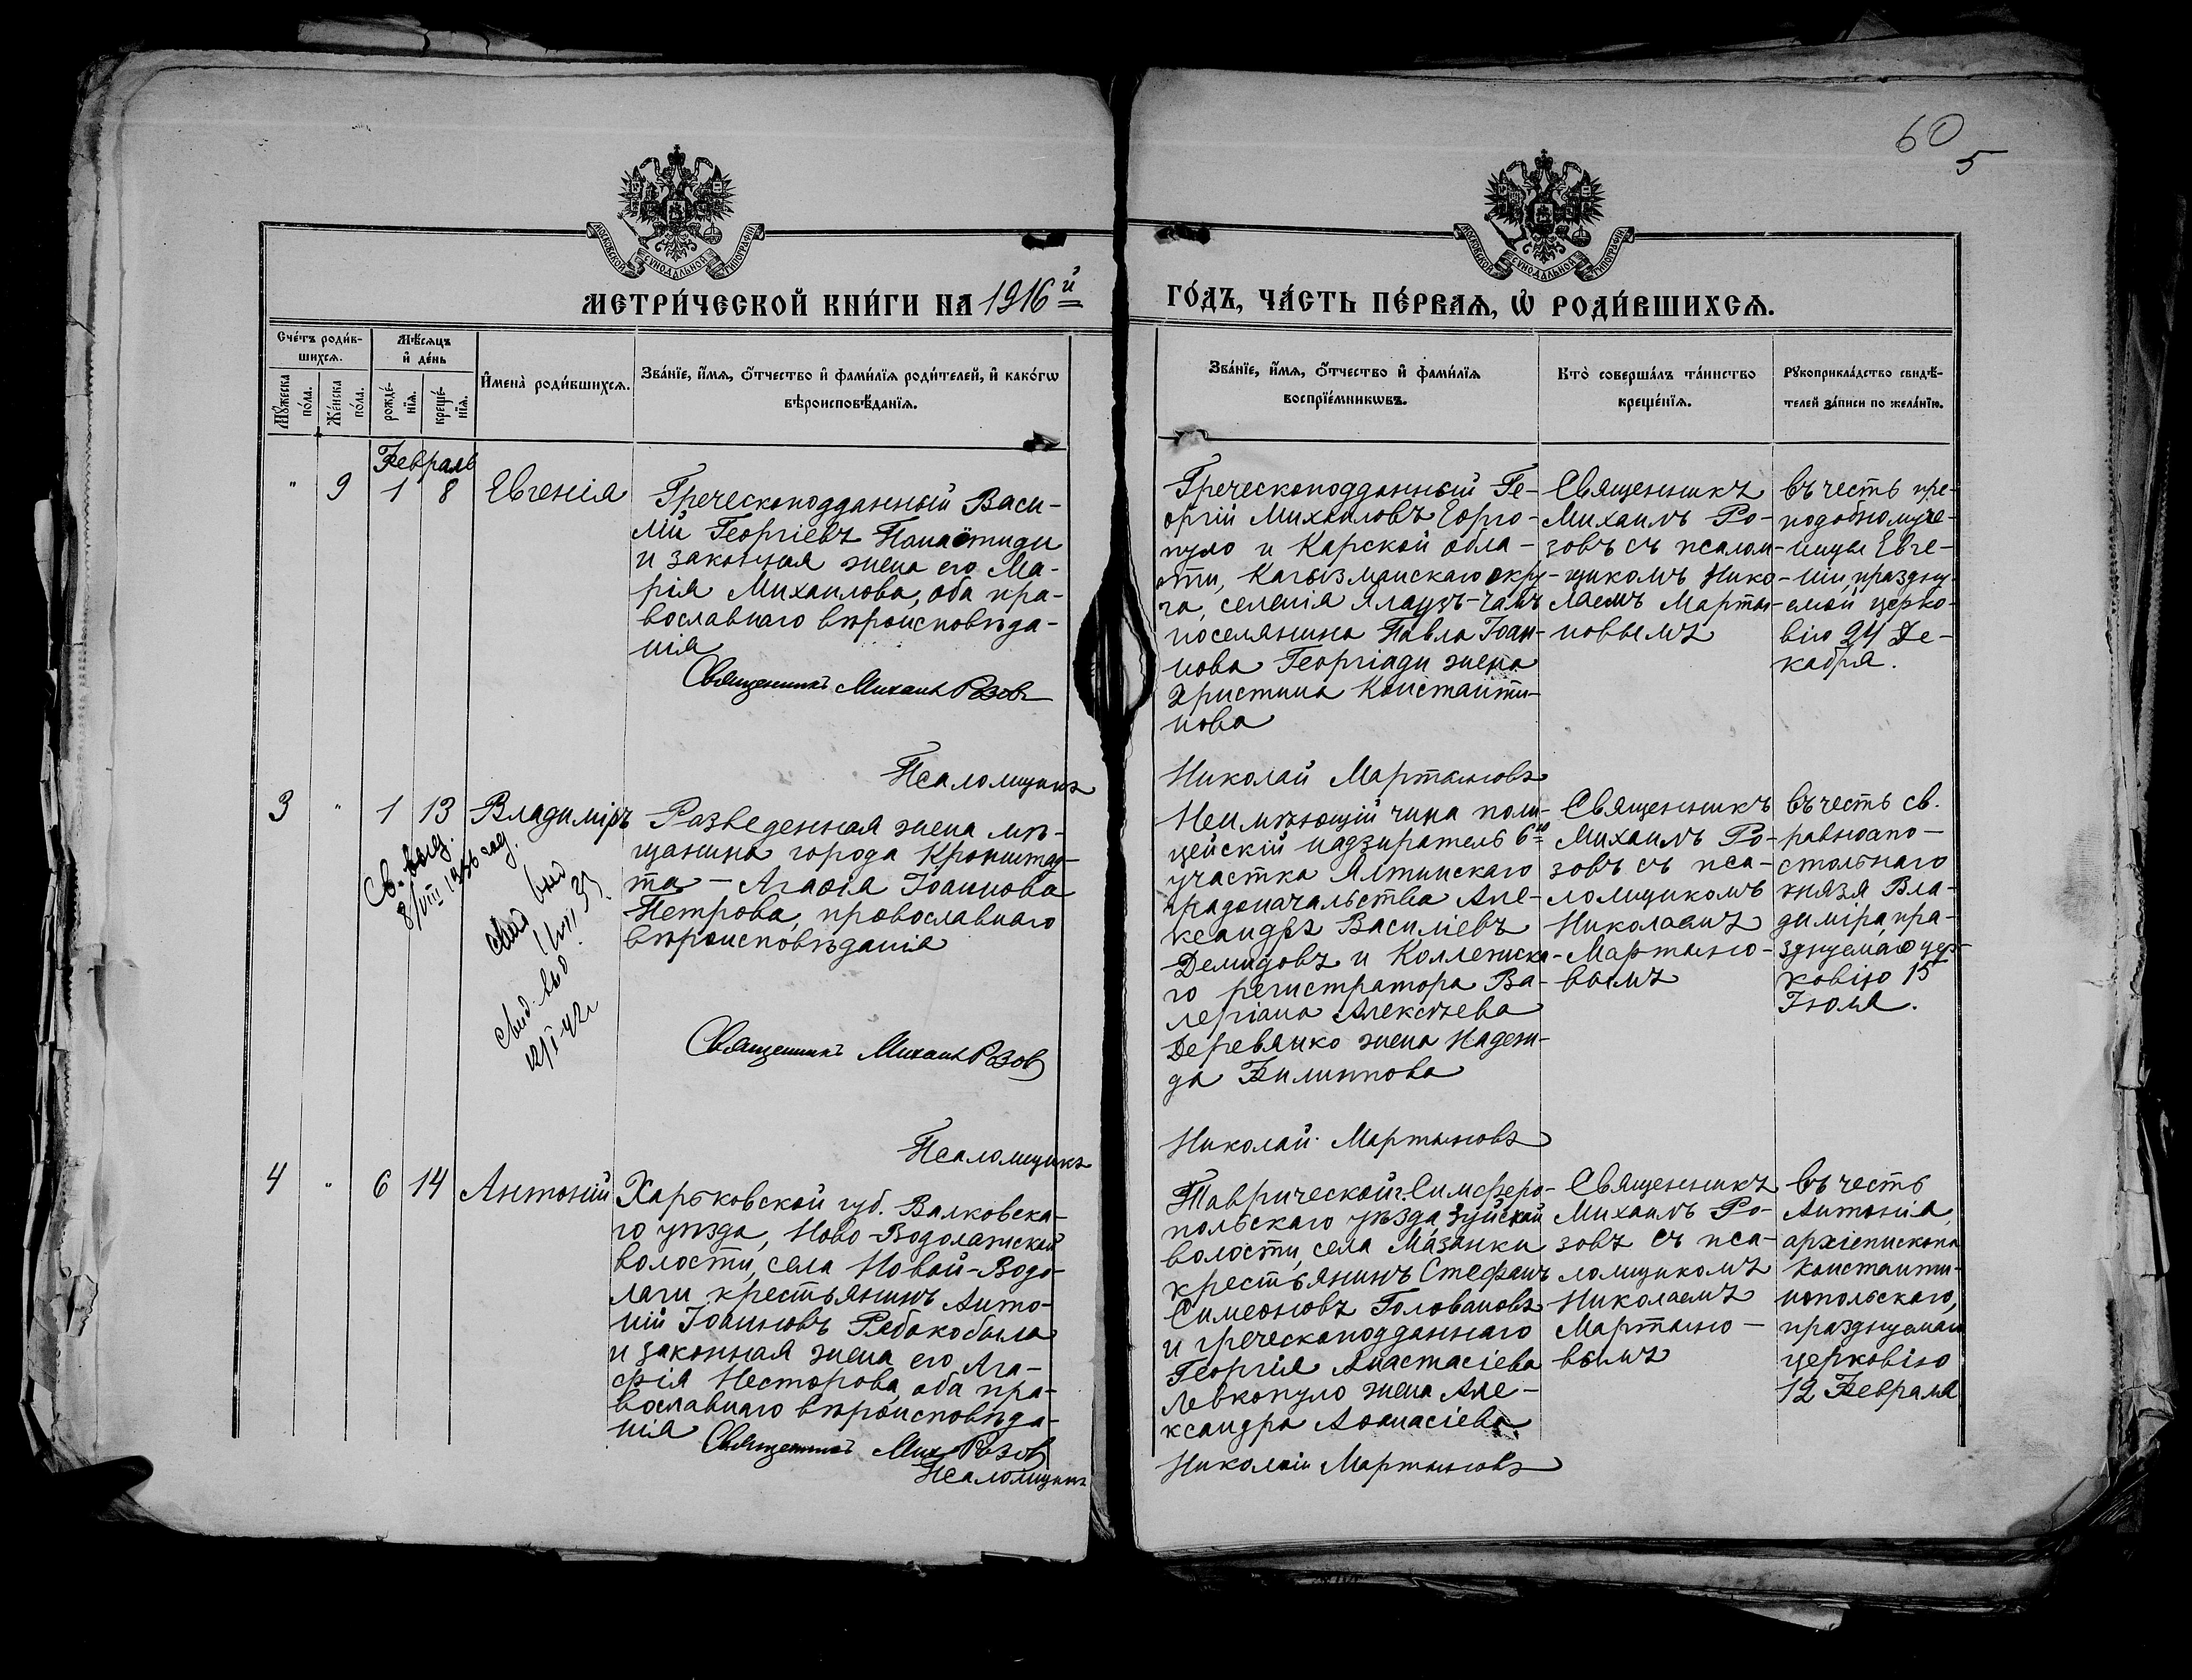 60
5
МОСКОВСКОЙ СѴНОДАЛЬНОЙ ТИПОГРАФІИ
МОСКОВСКОЙ СѴНОДАЛЬНОЙ ТИПОГРАФІИ
МЕТРИ́ЧЕСКОЙ КНИ́ГИ НА 1916й
ГО́ДЪ, ЧА́СТЬ ПЕ́РВАѦ, Ѡ РОДИ́ВШИХСѦ.
Сче́тъ роди́в-
шихсѧ.
Мꙋ́жеска по́ла.
Же́нска по́ла.
Мѣ́сѧцъ
и҆ де́нь
рожде́-
нїѧ.
креще́-
нїѧ.
И҆мена̀ роди́вшихсѧ.
Зва́нїе, и҆́мѧ, ѻ҆́тчество и҆ фами́лїѧ роди́телей, и҆ како́гѡ
вѣроисповѣ́данїѧ.
Зва́нїе, и҆́мѧ, ѻ҆́тчество и҆ фами́лїѧ
воспрїе́мникѡвъ.
Кто̀ соверша́лъ та́инство
креще́нїѧ.
Рꙋкоприкла́дство свидѣ́-
телей за́писи по жела́нїю.
Февраль
" 9 1 8 Евгенія
Греческоподданный Васи-
лій Георгіевъ Панаётиди
и законная жена его Ма-
рія Михаилова, оба пра-
вославнаго вѣроисповѣда-
нія
Священникъ Михаилъ Розовъ
Псаломщикъ
Греческоподданный Ге-
оргій Михаиловъ Горго-
пуло и Карской обла-
сти, Кагызманскаго окру-
га, селенія Ялаузъ-Чамъ
поселянина Павла Іоан-
нова Георгіади жена
Христина Константи-
нова
Николай Мартыновъ
Священникъ
Михаилъ Ро-
зовъ съ псалом-
щикомъ Нико-
лаемъ Марты-
новымъ
въ честь пре-
подобномуче-
ницы Евге-
ніи, праздну-
емой церко-
вію 24 Де-
кабря.
3 " 1 13 Владиміръ
Св. выд.
8/VIII 1936 год.
свид выд
свид. выд
12/I-42г
Разведенная жена мѣ-
щанина города Кронштад-
та - Агаѳія Іоаннова
Петрова, православнаго
вѣроисповѣданія
Священникъ Михаилъ Розов
Псаломщикъ
Неимѣющій чина поли-
цейскій надзиратель 6го
участка Ялтинскаго
градоначальства Але-
ксандръ Василіевъ
Демидовъ и Коллежска-
го регистратора Ва-
леріана Алексѣева
Деревянко жена Надеж-
да Филиппова
Николай Мартыновъ
Священникъ
Михаилъ Ро-
зовъ съ пса-
ломщикомъ
Николаемъ
Мартыно-
вымъ
въ честь св.
равноапо-
стольнаго
князя Вла-
диміра, пра-
зднуемаго цер-
ковію 15
Іюля.
4 " 6 14 Антоній
Харьковской губ. Валковска-
го уѣзда, Ново-Водолажской
волости, села Новой-Водо-
лаги крестьянинъ Анто-
ній Іоанновъ Рябокобыла
и законная жена его Ага-
фія Несторова, оба пра-
вославнаго вѣроисповѣда-
нія
Священникъ Мих Розов
Псаломщикъ
Таврической г. Симферо-
польскаго уѣзда, Зуйской
волости, села Мазанки
крестьянинъ Стефанъ
Симеоновъ Головановъ
и греческоподданнаго
Георгія Анастасіева
Левкопуло жена Але-
ксандра Аѳанасіева.
Николай Мартыновъ
Священникъ
Михаилъ Ро-
зовъ съ пса-
ломщикомъ
Николаемъ
Мартыно-
вымъ
въ честь
Антонія,
архіепископа
Константи-
нопольскаго,
празднуемаго
церковію
12 Февраля